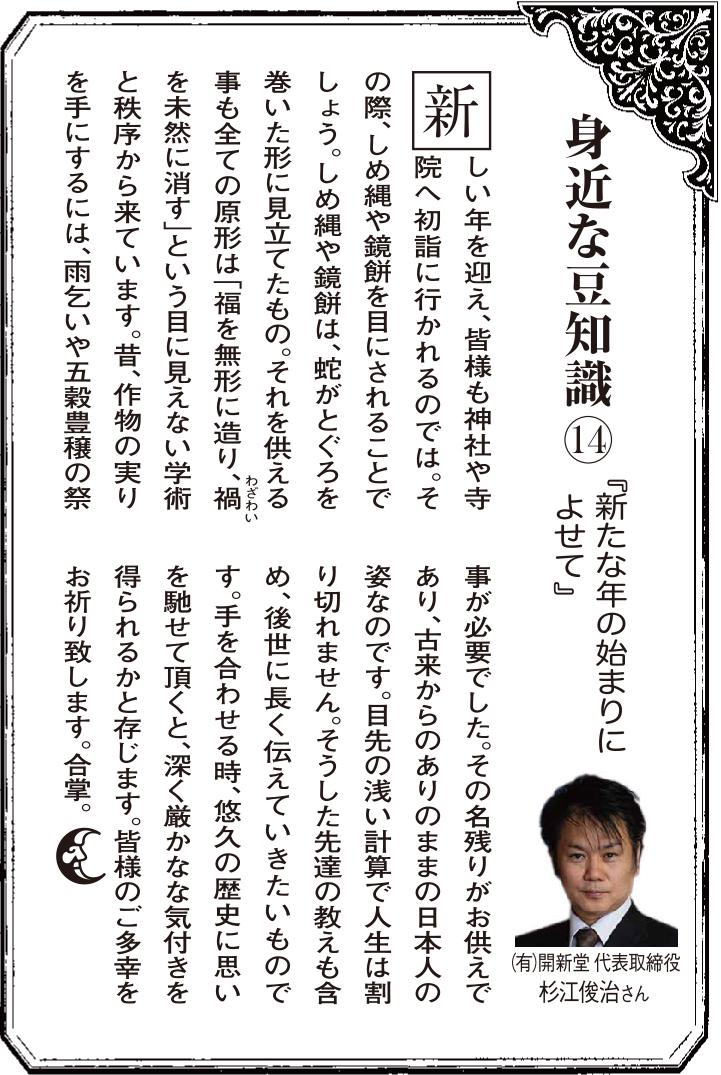 身近な豆知識⑭
『新たな年の始まりに
よせて』
㈲開新堂 代表取締役
杉江俊治さん
新しい年を迎え、皆様も神社や寺
院へ初詣に行かれるのでは。そ
の際、しめ縄や鏡餅を目にされることで
しょう。しめ縄や鏡餅は、蛇がとぐろを
巻いた形に見立てたもの。それを供える
事も全ての原形は「福を無形に造り、禍
わざわい
を未然に消す」という目に見えない学術
と秩序から来ています。昔、作物の実り
を手にするには、雨乞いや五穀豊穣の祭
事が必要でした。その名残りがお供えで
あり、古来からのありのままの日本人の
姿なのです。目先の浅い計算で人生は割
り切れません。そうした先達の教えも含
め、後世に長く伝えていきたいもので
す。手を合わせる時、悠久の歴史に思い
を馳せて頂くと、深く厳かなな気付きを
得られるかと存じます。皆様のご多幸を
お祈り致します。合掌。